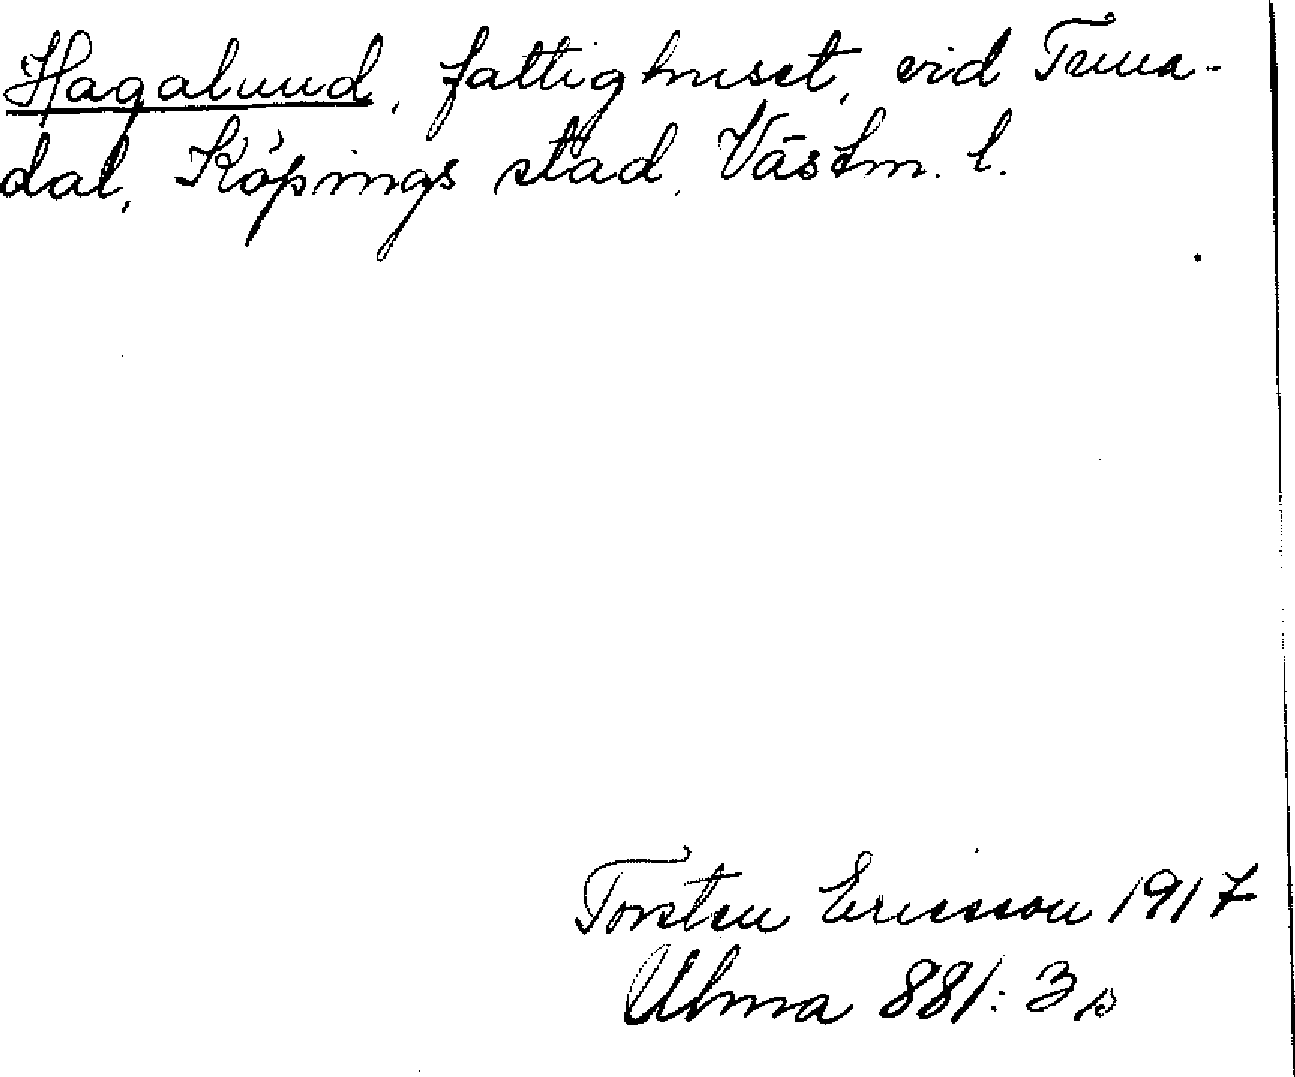 Hagalund, fattighuset, vid Tuna-
dal, Köpings stad, Västm. l.
Torsten Ericsson 1917
Ulma 881:3 s